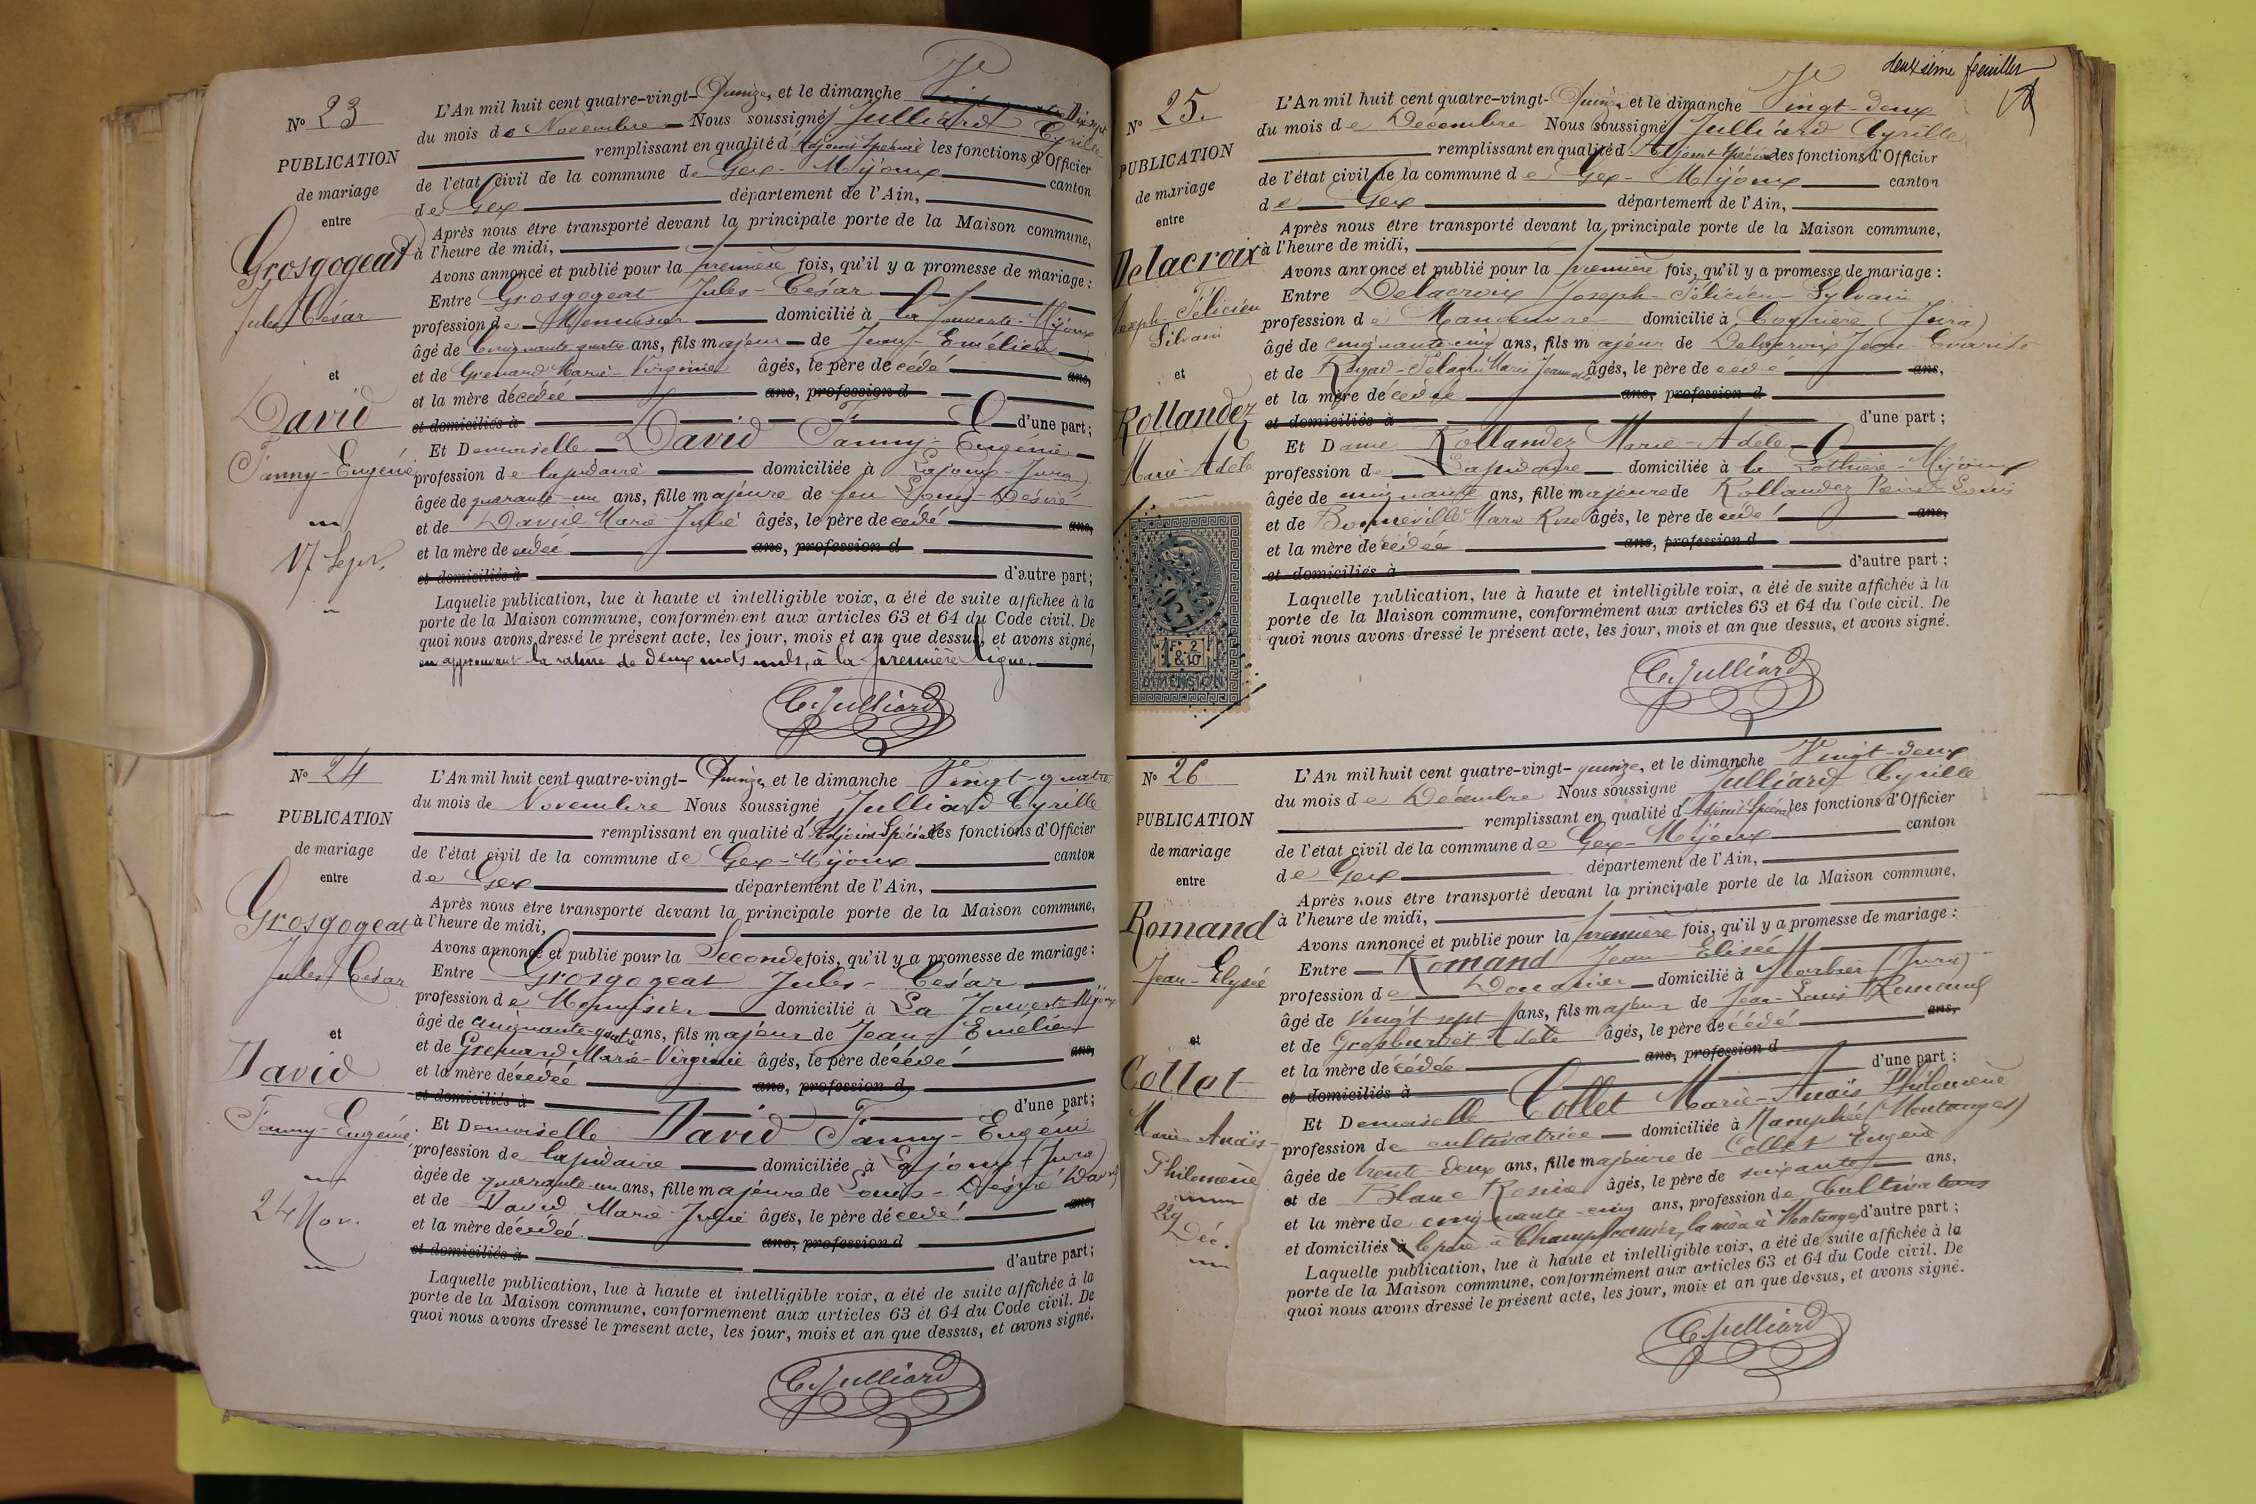 Nº 23
PUBLICATION
de mariage
entre
Grosgogeat
Jules César
et
David
Fanny-Eugénie
17 9bre.
L'An mil huit cent quatre-vingt-Quinze, et le dimanche Dix-sept
du mois de Novembre Nous soussigné Julliard Cyrille
remplissant en qualité d'Adjoint Spécial les fonctions d'Officier
de l'état civil de la commune de Gex-Mijoux canton
de Gex département de l'Ain,
Après nous être transporté devant la principale porte de la Maison commune,
à l'heure de midi,
Avons annoncé et publié pour la première fois, qu'il y a promesse de mariage :
Entre Grosgogeat Jules-César
profession de Menuisier domicilié à la Jouverte-Mijoux
âgé de Cinquante quatre ans, fils majeur de Jean-Emélien
et de Grenard Marie-Virginie âgés, le père décédé ans,
et la mère décédée ans, profession d
et domiciliés à d'une part;
Et Demoiselle David Fanny-Eugénie
profession de lapidaire domiciliée à Lajoux-Jura)
âgée de quarante-un ans, fille majeure de feu Louis Désiré
et de David Marie Julie âgés, le père décédé ans,
et la mère décédée ans, profession d
et domiciliés à d'autre part;
Laquelle publication, lue à haute et intelligible voix, a été de suite affichée à la
porte de la Maison commune, conformément aux articles 63 et 64 du Code civil. De
quoi nous avons dressé le présent acte, les jour, mois et an que dessus, et avons signé,
en approuvant la rature de deux mots nuls, à la première ligne.
C. Julliard
Nº 24
PUBLICATION
de mariage
entre
Grosgogeat
Jules César
et
David
Fanny-Eugénie
24 Nov.
L'An mil huit cent quatre-vingt-Quinze, et le dimanche Vingt-quatre
du mois de Novembre Nous soussigné Julliard Cyrille
remplissant en qualité d'Adjoint Spécial les fonctions d'Officier
de l'état civil de la commune de Gex-Mijoux canton
de Gex département de l'Ain,
Après nous être transporté devant la principale porte de la Maison commune,
à l'heure de midi,
Avons annoncé et publié pour la Seconde fois, qu'il y a promesse de mariage :
Entre Grosgogeat Jules-César
profession de Menuisier domicilié à La Jouverte-Mijoux
âgé de cinquante-quatre ans, fils majeur de Jean-Emélien
et de Grenard Marie-Virginie âgés, le père décédé ans,
et la mère décédée ans, profession d
et domiciliés à d'une part;
Et Demoiselle David Fanny-Eugénie
profession de lapidaire domiciliée à Lajoux (Jura)
âgée de quarante-un ans, fille majeure de Louis-Désiré David
et de David Marie-Julie âgés, le père décédé ans,
et la mère décédée ans, profession d
et domiciliés à d'autre part;
Laquelle publication, lue à haute et intelligible voix, a été de suite affichée à la
porte de la Maison commune, conformément aux articles 63 et 64 du Code civil. De
quoi nous avons dressé le présent acte, les jour, mois et an que dessus, et avons signé.
C. Julliard
deuxième feuillet
Nº 25.
PUBLICATION
de mariage
entre
Delacroix
Joseph-Félicien
Silvain
et
Rollandez
Marie-Adèle
2
8/10
DIMENSION
L'An mil huit cent quatre-vingt-Quinze, et le dimanche Vingt-deux
du mois de Décembre Nous soussigné Julliard Cyrille
remplissant en qualité d'Adjoint Spécial les fonctions d'Officier
de l'état civil de la commune de Gex-Mijoux canton
de Gex département de l'Ain,
Après nous être transporté devant la principale porte de la Maison commune,
à l'heure de midi,
Avons annoncé et publié pour la première fois, qu'il y a promesse de mariage :
Entre Delacroix Joseph-Félicien-Sylvain
profession de Manœuvre domicilié à (Jura)
âgé de cinquante-cinq ans, fils majeur de Delacroix Jean-Evariste
et de Marie Jeannette âgés, le père décédé ans,
et la mère décédée ans, profession d
et domiciliés à d'une part;
Et Dame Rollandez Marie-Adèle
profession de Lapidaire domiciliée à la Mijoux
âgée de cinquante ans, fille majeure de Rollandez Louis
et de Bonneville Marie Rose âgés, le père décédé ans,
et la mère décédée ans, profession d
et domiciliés à d'autre part;
Laquelle publication, lue à haute et intelligible voix, a été de suite affichée à la
porte de la Maison commune, conformément aux articles 63 et 64 du Code civil. De
quoi nous avons dressé le présent acte, les jour, mois et an que dessus, et avons signé.
C. Julliard
Nº 26
PUBLICATION
de mariage
entre
Romand
Jean-Elysée
et
Collet
Marie-Anaïs-
Philomène
22
Déc.
L'An mil huit cent quatre-vingt-quinze, et le dimanche Vingt-deux
du mois de Décembre Nous soussigné Julliard Cyrille
remplissant en qualité d'Adjoint Spécial les fonctions d'Officier
de l'état civil de la commune de Gex-Mijoux canton
de Gex département de l'Ain,
Après nous être transporté devant la principale porte de la Maison commune,
à l'heure de midi,
Avons annoncé et publié pour la première fois, qu'il y a promesse de mariage :
Entre Romand Jean-Elisée
profession de Douanier domicilié à Morbier (Jura)
âgé de vingt sept ans, fils majeur de Jean-Louis Romand
et de Grosburdet Adèle âgés, le père décédé ans,
et la mère décédée ans, profession d
et domiciliés à d'une part;
Et Demoiselle Collet Marie-Anaïs Philomène
profession de cultivatrice domiciliée à (Montanges)
âgée de trente-deux ans, fille majeure de Collet Eugène
et de Blanc Rosine âgés, le père de soixante ans,
et la mère de cinquante-cinq ans, profession de Cultivateurs
et domiciliés à le père à Champfromier, la mère à Montanges d'autre part;
Laquelle publication, lue à haute et intelligible voix, a été de suite affichée à la
porte de la Maison commune, conformément aux articles 63 et 64 du Code civil. De
quoi nous avons dressé le présent acte, les jour, mois et an que dessus, et avons signé.
C. Julliard